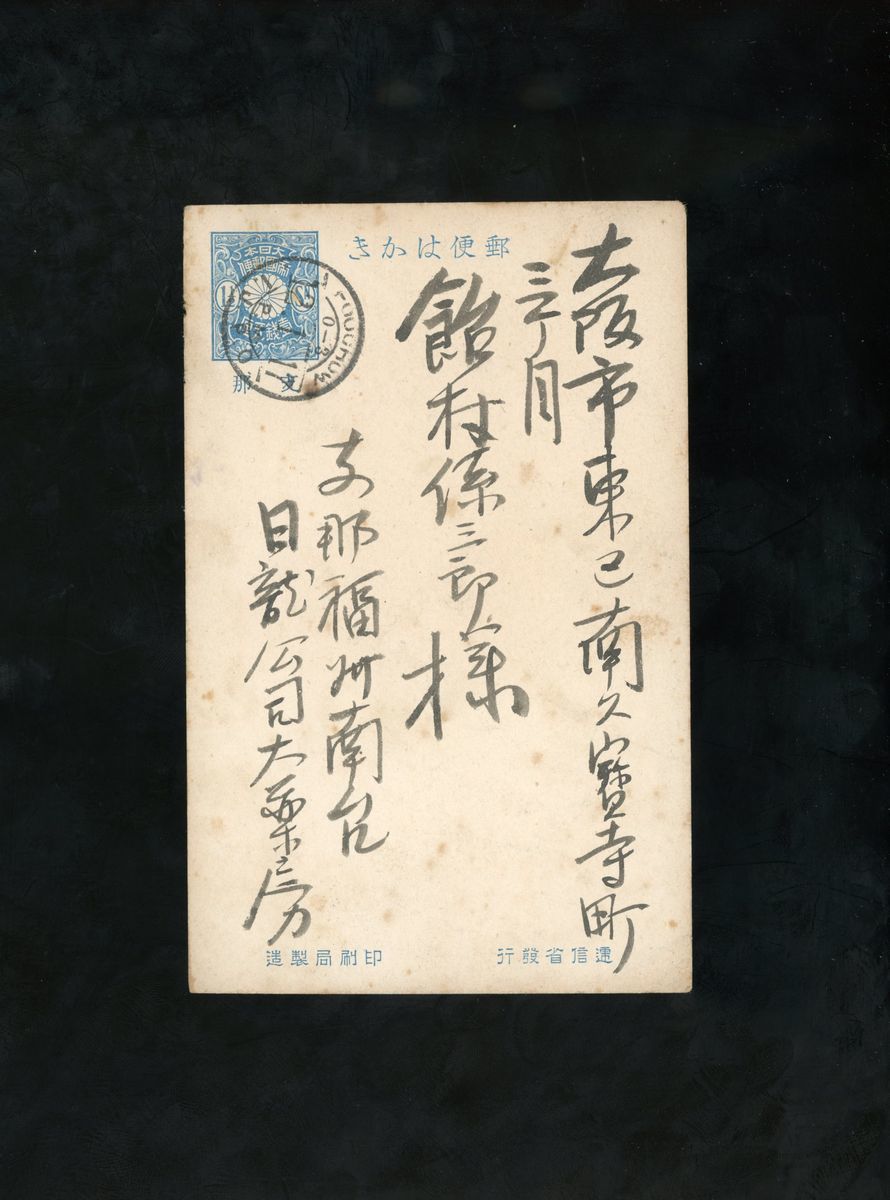 郵便はかき
大日本
帝國郵便
1½
壹錢五厘
支那
FOOCHOW
大阪市東区南久寶寺町
三丁目
飴村係三郎様
支那福州南台
日龍公司大薬房
遞信省發行
印刷局製造